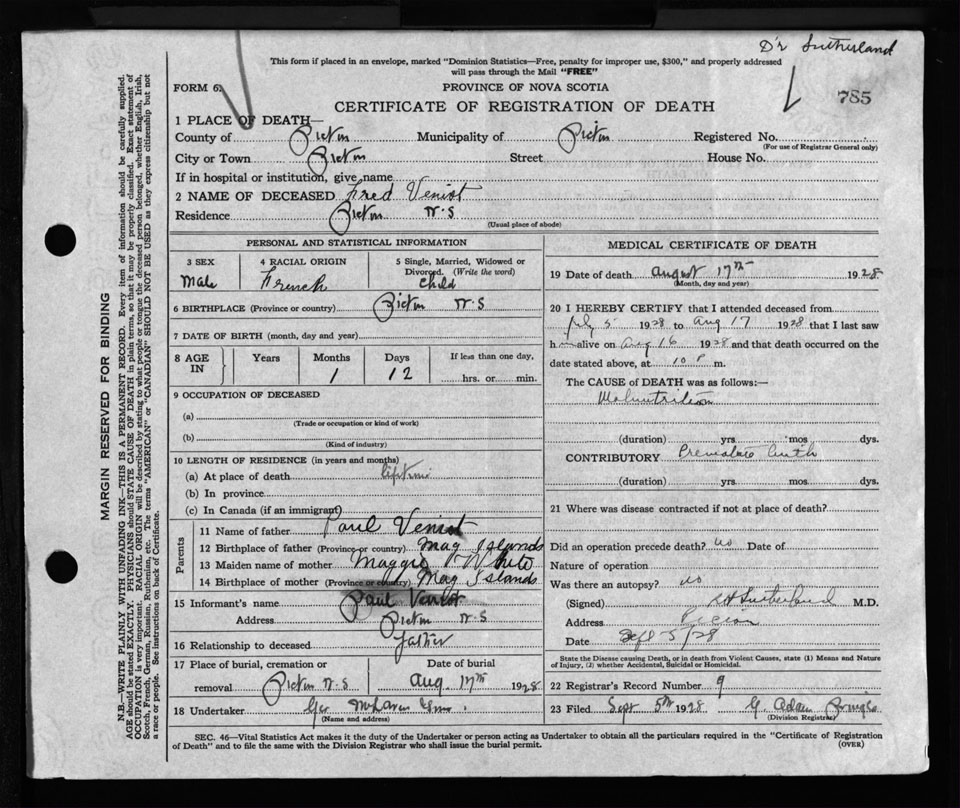 Dr Sutherland
This form if placed in an envelope, marked "Dominion Statistics—Free, penalty for improper use, $300," and properly addressed
will pass through the Mail "FREE"
FORM 6.
PROVINCE OF NOVA SCOTIA
785
CERTIFICATE OF REGISTRATION OF DEATH
1 PLACE OF DEATH—
County of Pictou Municipality of Pictou Registered No.
(For use of Registrar General only)
City or Town Pictou Street House No.
If in hospital or institution, give name
2 NAME OF DECEASED Fred Veniot
Residence Pictou N.S
(Usual place of abode)
PERSONAL AND STATISTICAL INFORMATION
3 SEX 4 RACIAL ORIGIN 5 Single, Married, Widowed or
Divorced. (Write the word)
Male French Child
6 BIRTHPLACE (Province or country) Pictou N.S
7 DATE OF BIRTH (month, day and year)
8 AGE IN Years Months Days If less than one day,
1 12 hrs. or min.
9 OCCUPATION OF DECEASED
(a)
(Trade or occupation or kind of work)
(b)
(Kind of industry)
10 LENGTH OF RESIDENCE (in years and months)
(a) At place of death lifetime
(b) In province
(c) In Canada (if an immigrant)
Parents
11 Name of father Paul Veniot
12 Birthplace of father (Province or country) Mag Islands
13 Maiden name of mother Maggie White
14 Birthplace of mother (Province or country) Mag Islands
15 Informant's name Paul Veniot
Address Pictou N.S
16 Relationship to deceased father
17 Place of burial, cremation or Date of burial
removal Pictou N.S Aug 17th 1928
18 Undertaker Geo McLaren
(Name and address)
MEDICAL CERTIFICATE OF DEATH
19 Date of death August 17th 1928
(Month, day and year)
20 I HEREBY CERTIFY that I attended deceased from
July 5 1928 to Aug 17 1928 that I last saw
him alive on Aug 16 1928 and that death occurred on the
date stated above, at 10 P m.
The CAUSE of DEATH was as follows:—
Malnutrition
(duration) yrs. mos. dys.
CONTRIBUTORY Premature birth
(duration) yrs. mos. dys.
21 Where was disease contracted if not at place of death?
Did an operation precede death? no Date of
Nature of operation
Was there an autopsy? no
(Signed) Sutherland M.D.
Address Pictou
Date Sept 5/28
State the Disease causing Death, or in death from Violent Causes, state (1) Means and Nature
of Injury, (2) whether Accidental, Suicidal or Homicidal.
22 Registrar's Record Number 9
23 Filed Sept 5th 1928 G. Adam Pringle
(Division Registrar)
SEC. 46—Vital Statistics Act makes it the duty of the Undertaker or person acting as Undertaker to obtain all the particulars required in the "Certificate of Registration
of Death" and to file the same with the Division Registrar who shall issue the burial permit. (OVER)
MARGIN RESERVED FOR BINDING
N.B.—WRITE PLAINLY WITH UNFADING INK—THIS IS A PERMANENT RECORD. Every item of information should be carefully supplied.
AGE should be stated EXACTLY. PHYSICIANS should STATE CAUSE OF DEATH in plain terms, so that it may be properly classified. Exact statement of
OCCUPATION is very important. RACIAL ORIGIN will be described by stating to what people or tongue the deceased person belonged, whether English, Irish,
Scotch, French, German, Russian, Ruthenian, etc. The terms "AMERICAN" or "CANADIAN" SHOULD NOT BE USED as they express citizenship but not
a race or people. See instructions on back of Certificate.